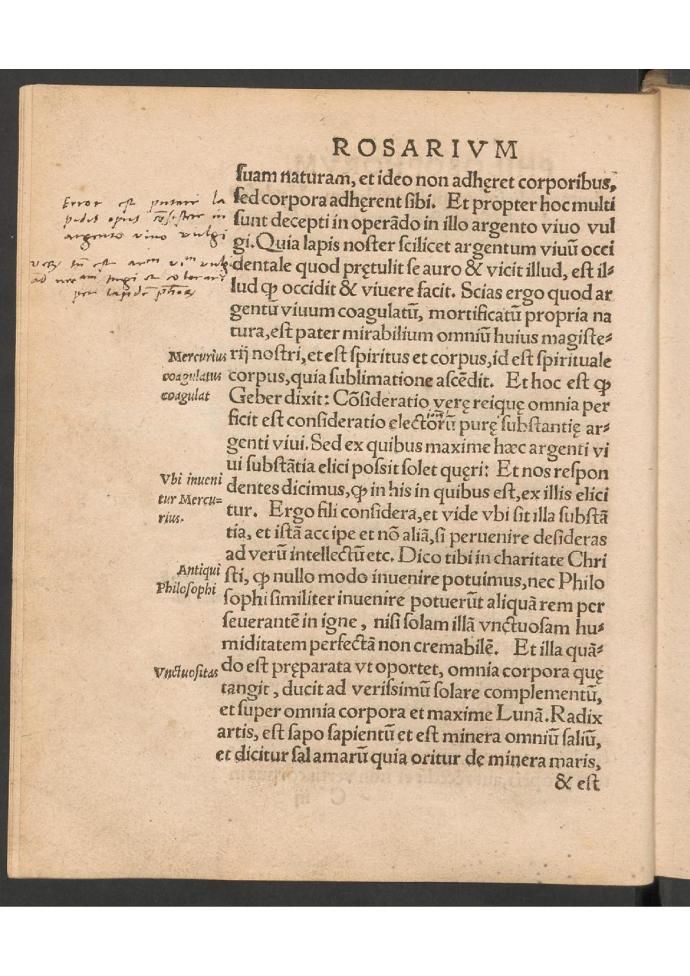 ROSARIVM
suam naturam, et ideo non adhęret corporibus,
sed corpora adhęrent sibi. Et propter hoc multi
sunt decepti in operãdo in illo argento viuo vul
gi. Quia lapis noster scilicet argentum viuũ occi
dentale quod prętulit se auro & vicit illud, est il⸗
lud ꝙ occidit & viuere facit. Scias ergo quod ar
gentũ viuum coagulatũ, mortificatũ propria na
tura, est pater mirabilium omniũ huius magiste⸗
rij nostri, et est spiritus et corpus, id est spirituale
corpus, quia sublimatione ascẽdit. Et hoc est ꝙ
Geber dixit: Cõsideratio verę reique omnia per
ficit est consideratio electorũ purę substantię ar⸗
genti viui. Sed ex quibus maxime hæc argenti vi
ui substãtia elici possit solet quęri: Et nos respon
dentes dicimus, ꝙ in his in quibus est, ex illis elici
tur. Ergo fili considera, et vide vbi sit illa substã
tia, et istã accipe et nõ aliã, si peruenire desideras
ad verũ intellectũ etc. Dico tibi in charitate Chri
sti, ꝙ nullo modo inuenire potuimus, nec Philo
sophi similiter inuenire potuerũt aliquã rem per
seuerantẽ in igne, nisi solam illã vnctuosam hu⸗
miditatem perfectã non cremabilẽ. Et illa quã⸗
do est pręparata vt oportet, omnia corpora quę
tangit, ducit ad verissimũ solare complementũ,
et super omnia corpora et maxime Lunã. Radix
artis, est sapo sapientũ et est minera omniũ saliũ,
et dicitur sal amarũ quia oritur de minera maris,
& est
Error est putare la
argento vivo vulgi
Mercurius
coagulatus
coagulat
Vbi inueni
tur Mercu⸗
rius.
Antiqui
Philosophi
Vnctuositas